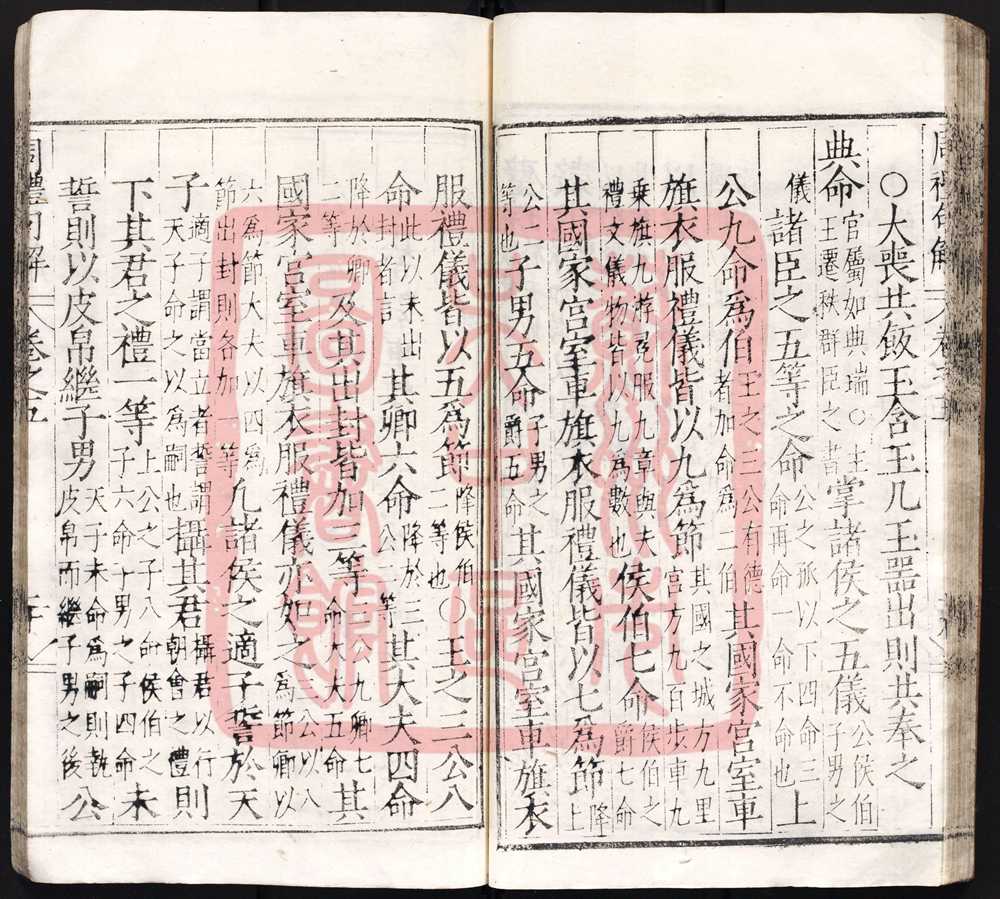 ○大喪共飯玉含玉几玉器出則共奉之
典命官屬如典瑞○主王遷秩群臣之書掌諸侯之五儀公侯伯子男之
儀諸臣之五等之命公之孤以下四命三命再命一命不命也上
公九命爲伯王之三公有德者加命爲二伯其國家宮室車
旗衣服禮儀皆以九爲節其國之城方九里宮方九百步車九
乘旗九斿冕服九章與夫禮文儀物皆以九爲數也侯伯七命侯伯之爵七命
其國家宮室車旗衣服禮儀皆以七爲節降上
公二等也子男五命子男之爵五命其國家宮室車旗衣
服禮儀皆以五爲節降侯伯二等也○王之三公八
命此以未出封者言其卿六命降於三公二等其大夫四命
降於卿二等及其出封皆加一等公九命卿七命大夫五命其
國家宮室車旗衣服禮儀亦如之三公以八爲節卿以
六爲節大夫以四爲節出封則各加一等凡諸侯之適子誓於天
子適子謂當立者誓謂天子命之以爲嗣也攝其君攝君以行朝會之禮則
下其君之禮一等上公之子八命侯伯之子六命子男之子四命未
誓則以皮帛繼子男天子未命爲嗣則執皮帛而繼子男之後公
周禮句解 卷之五